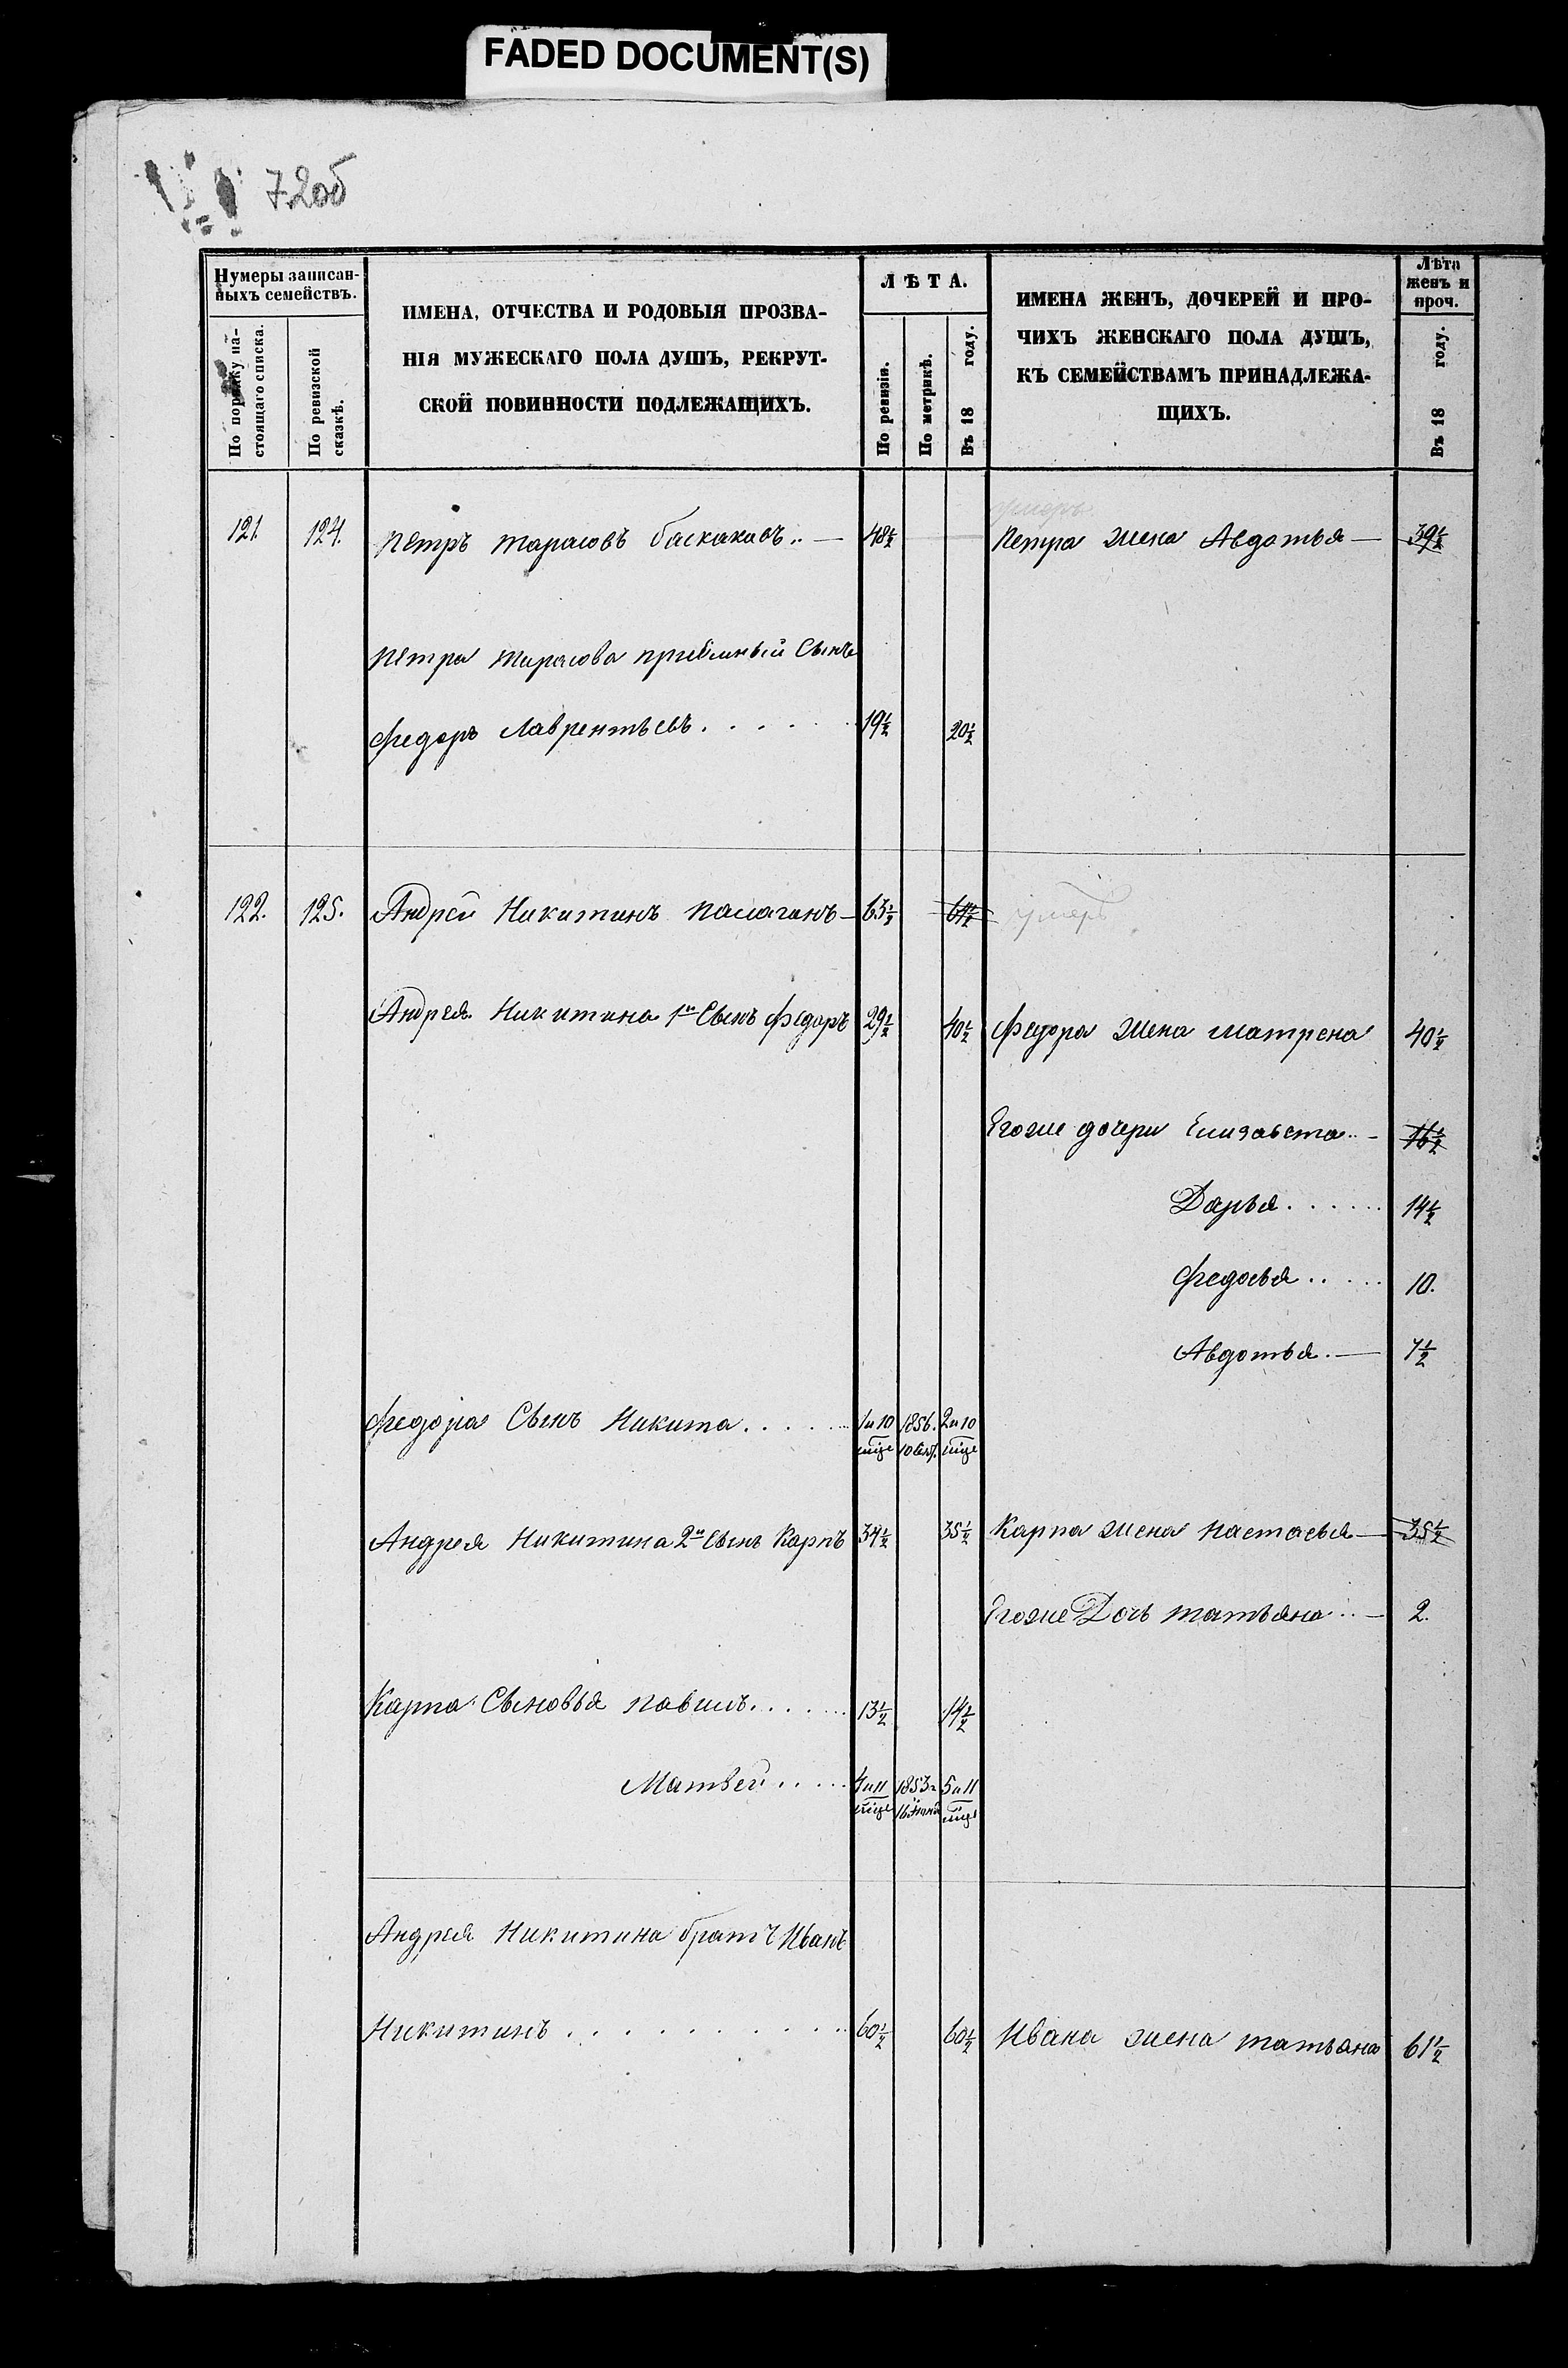 FADED DOCUMENT(S)
72об
Нумеры записан-
ныхъ семействъ.
По порядку на-
стоящаго списка.
По ревизской
сказкѣ.
ИМЕНА, ОТЧЕСТВА И РОДОВЫЯ ПРОЗВА-
НІЯ МУЖЕСКАГО ПОЛА ДУШЪ, РЕКРУТ-
СКОЙ ПОВИННОСТИ ПОДЛЕЖАЩИХЪ.
ЛѢТА.
По ревизіи.
По метрикѣ.
Въ 18 году.
ИМЕНА ЖЕНЪ, ДОЧЕРЕЙ И ПРО-
ЧИХЪ ЖЕНСКАГО ПОЛА ДУШЪ,
КЪ СЕМЕЙСТВАМЪ ПРИНАДЛЕЖА-
ЩИХЪ.
Лѣта
женъ и
проч.
Въ 18 году.
умеръ
121. 124. Петръ Тарасовъ Баскаковъ..— 48½ Петра жена Авдотья— 39½
Петра Тарасова приёмный Сынъ
Федоръ Лаврентьевъ. . . . . 19½ 20½
122. 125. Андрей Никитинъ — 63½ 64½ умеръ
Андрея Никитина 1й Сынъ Федоръ 29½ 40½ Федора жена Матрена 40½
Егоже дочери Елизавета..- 16½
Дарья. . . . . . 14½
Федосья. . . . . 10.
Авдотья.— 7½
Федора Сынъ Никита. . . . . 1 и 10 мце 1856. 10 Сент. 2 и 10 мце
Андрея Никитина 2й Сынъ Карпъ 34½ 35½ Карпа жена Настасья— 35½
Егоже Дочь Татьяна..- 2.
Карпа Сыновья Павилъ. . . . . . 13½ 14½
Матвей. . . . . 4 и 11 мце 1853 16 5 и 11 мце
Андрея Никитина братъ Иванъ
Никитинъ. . . . . . . . . . . 60½ 60½ Ивана жена Татьяна 61½